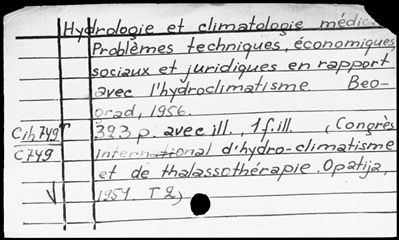 Hydrologie et climatologie médic
Problèmes techniques, économiques,
sociaux et juridiques en rapport
avec l'hydroclimatisme. Beo-
grad, 1956.
Cih749 393 p. avec ill., 1 f. ill. (Congrès
C749 international d'hydro-climatisme
et de thalassothérapie. Opatija,
1954. T 2)